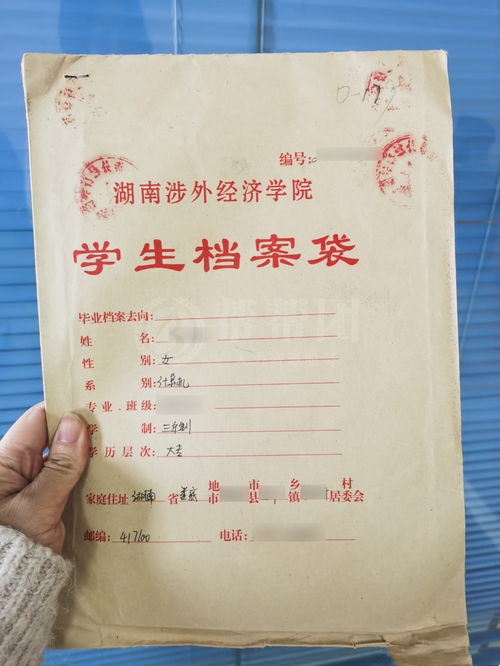 0-17
编号:
湖南涉外经济学院
学生档案袋
毕业档案去向:
姓 名:
性 别: 女
系 别: 计算机
专业.班级:
学 制: 三年制
学历层次: 大专
家庭住址 湖南 省 娄底 地市 市县 乡镇 村居委会
邮编: 417100 电话:
帮帮团